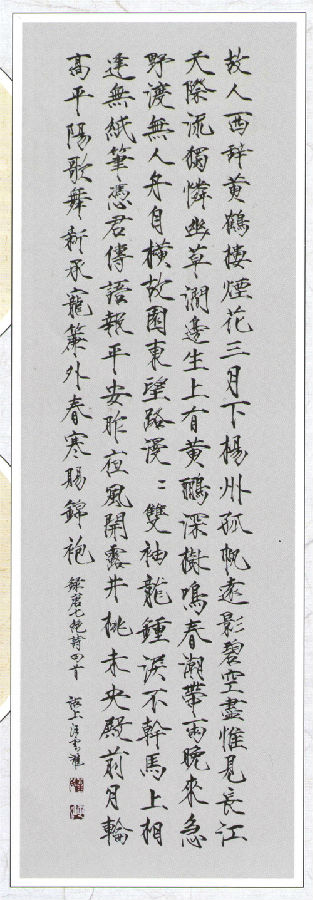 故人西辞黄鶴樓煙花三月下楊州孤帆遠影碧空盡惟見長江
天際流獨憐幽草澗邊生上有黄鸝深樹鳴春潮帶雨晚來急
野渡無人舟自橫故園東望路漫〻雙袖龍鍾淚不幹馬上相
逢無紙筆憑君傳語報平安昨夜風開露井桃未央殿前月輪
高平陽歌舞新承寵簾外春寒賜錦袍
錄唐七絕詩四首